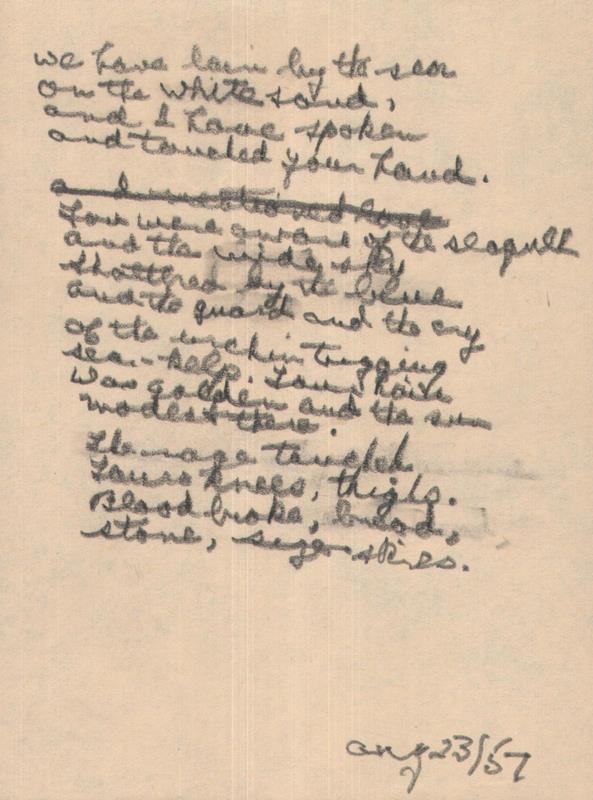 we have lain by the sea
on the white sand,
and I have spoken
and touched your hand.
You were aware of the seagull
and the wide sky
shattered by the blue
and the guard and the cry
of the urchin tugging
sea-kelp. Your hair
was golden and the sun
modest there.
The rage touched
Laura knees, thighs.
Blood broke, bread,
stone, skies.
aug 23/57